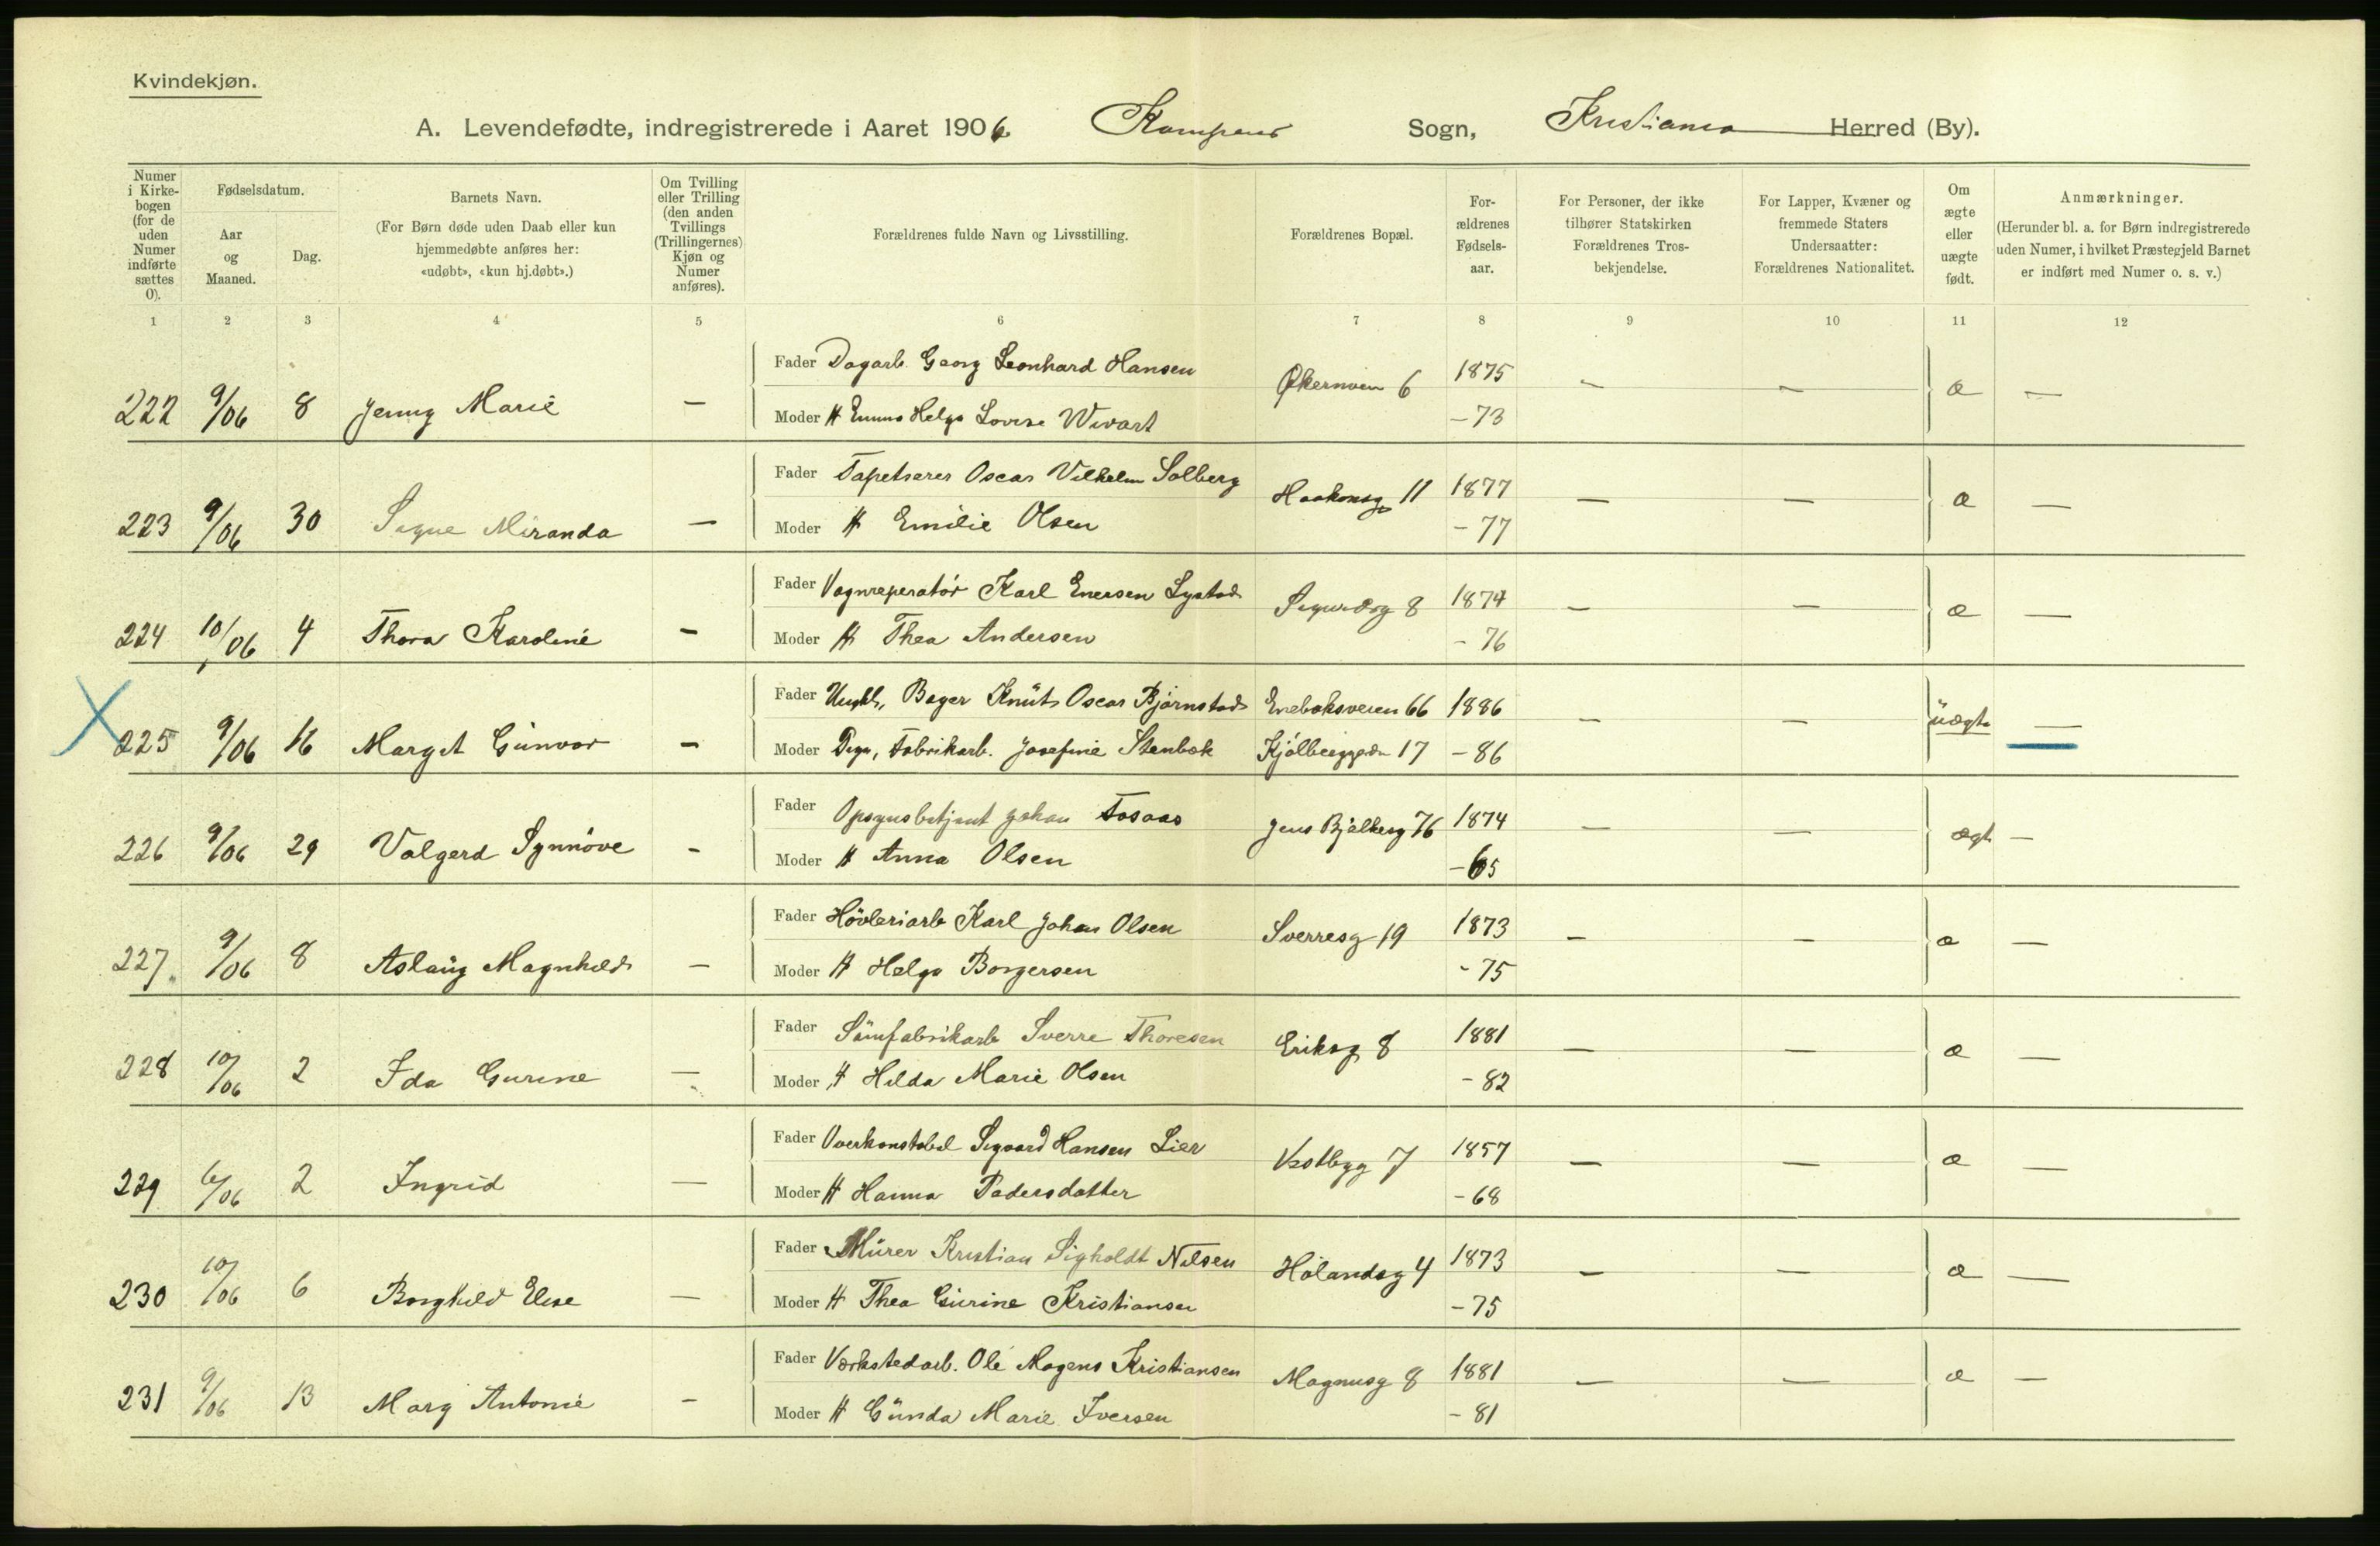 Kvindekjøn.
A. Levendefødte, indregistrerede i Aaret 1906 Kampens Sogn, Kristiania Herred (By).
Numer i Kirkebogen (for de uden Numer indførte sættes 0).
Fødselsdatum.
Aar og Maaned.
Dag.
Barnets Navn.
(For Børn døde uden Daab eller kun hjemmedøbte anføres her: «udøbt», «kun hj.døbt».)
Om Tvilling eller Trilling (den anden Tvillings (Trillingernes) Kjøn og Numer anføres).
Forældrenes fulde Navn og Livsstilling.
Forældrenes Bopæl.
Forældrenes Fødselsaar.
For Personer, der ikke tilhører Statskirken Forældrenes Trosbekjendelse.
For Lapper, Kvæner og fremmede Staters Undersaatter: Forældrenes Nationalitet.
Om ægte eller uægte født.
Anmærkninger.
(Herunder bl. a. for Børn indregistrerede uden Numer, i hvilket Præstegjeld Barnet er indført med Numer o. s. v.)
1 2 3 4 5 6 7 8 9 10 11 12
Fader Dagarb. Georg Leonhard Hansen Økernveien 6 1875
222 9/06 8 Jenny Marie — Moder H Emma Helga Lovise Wivart - 73 — — æ —
Fader Tapetserer Oscar Vilhelm Solberg Haakonsg 11 1877
223 9/06 30 Signe Miranda — Moder H Emilie Olsen - 77 — — æ —
Fader Vognreperatør Karl Enersen Lystad Sigurdsg 8 1874
224 10/06 4 Thora Karoline — Moder H Thea Andersen - 76 — — æ —
Fader Ungk, Bager Knut Oscar Bjørnstad Enebakveien 66 1886
225 9/06 16 Margit Gunvor — Moder Pige, Fabrikarb. Josefine Stenbæk Kjølberggdn 17 - 86 — — uægte —
Fader Opsynsbetjent Johan Fosaas Jens Bjelkesg 76 1874
226 9/06 29 Valgerd Synnøve - Moder H Anna Olsen - 65 — — ægte —
Fader Høvleriarb Karl Johan Olsen Sverresg 19 1873
227 9/06 8 Aslaug Magnhild — Moder H Helga Borgersen - 75 — — æ —
Fader Sømfabrikarb Sverre Thoresen Eriksg 8 1881
228 10/06 2 Ida Gurine — Moder H Hilda Marie Olsen - 82 — — æ —
Fader Overkonstabel Sigvard Hansen Lier Vestbyg 7 1857
229 6/06 2 Ingrid — Moder H Hanna Pedersdatter - 68 — — æ —
Fader Murer Kristian Sigholdt Nilsen Hølandsg 4 1873
230 10/06 6 Borghild Elise — Moder H Thea Gurine Kristiansen - 75 — — æ —
Fader Værkstedarb. Ole Magens Kristiansen Magnusg 8 1881
231 9/06 13 Mary Antonie - Moder H Gunda Marie Iversen - 81 — — æ —